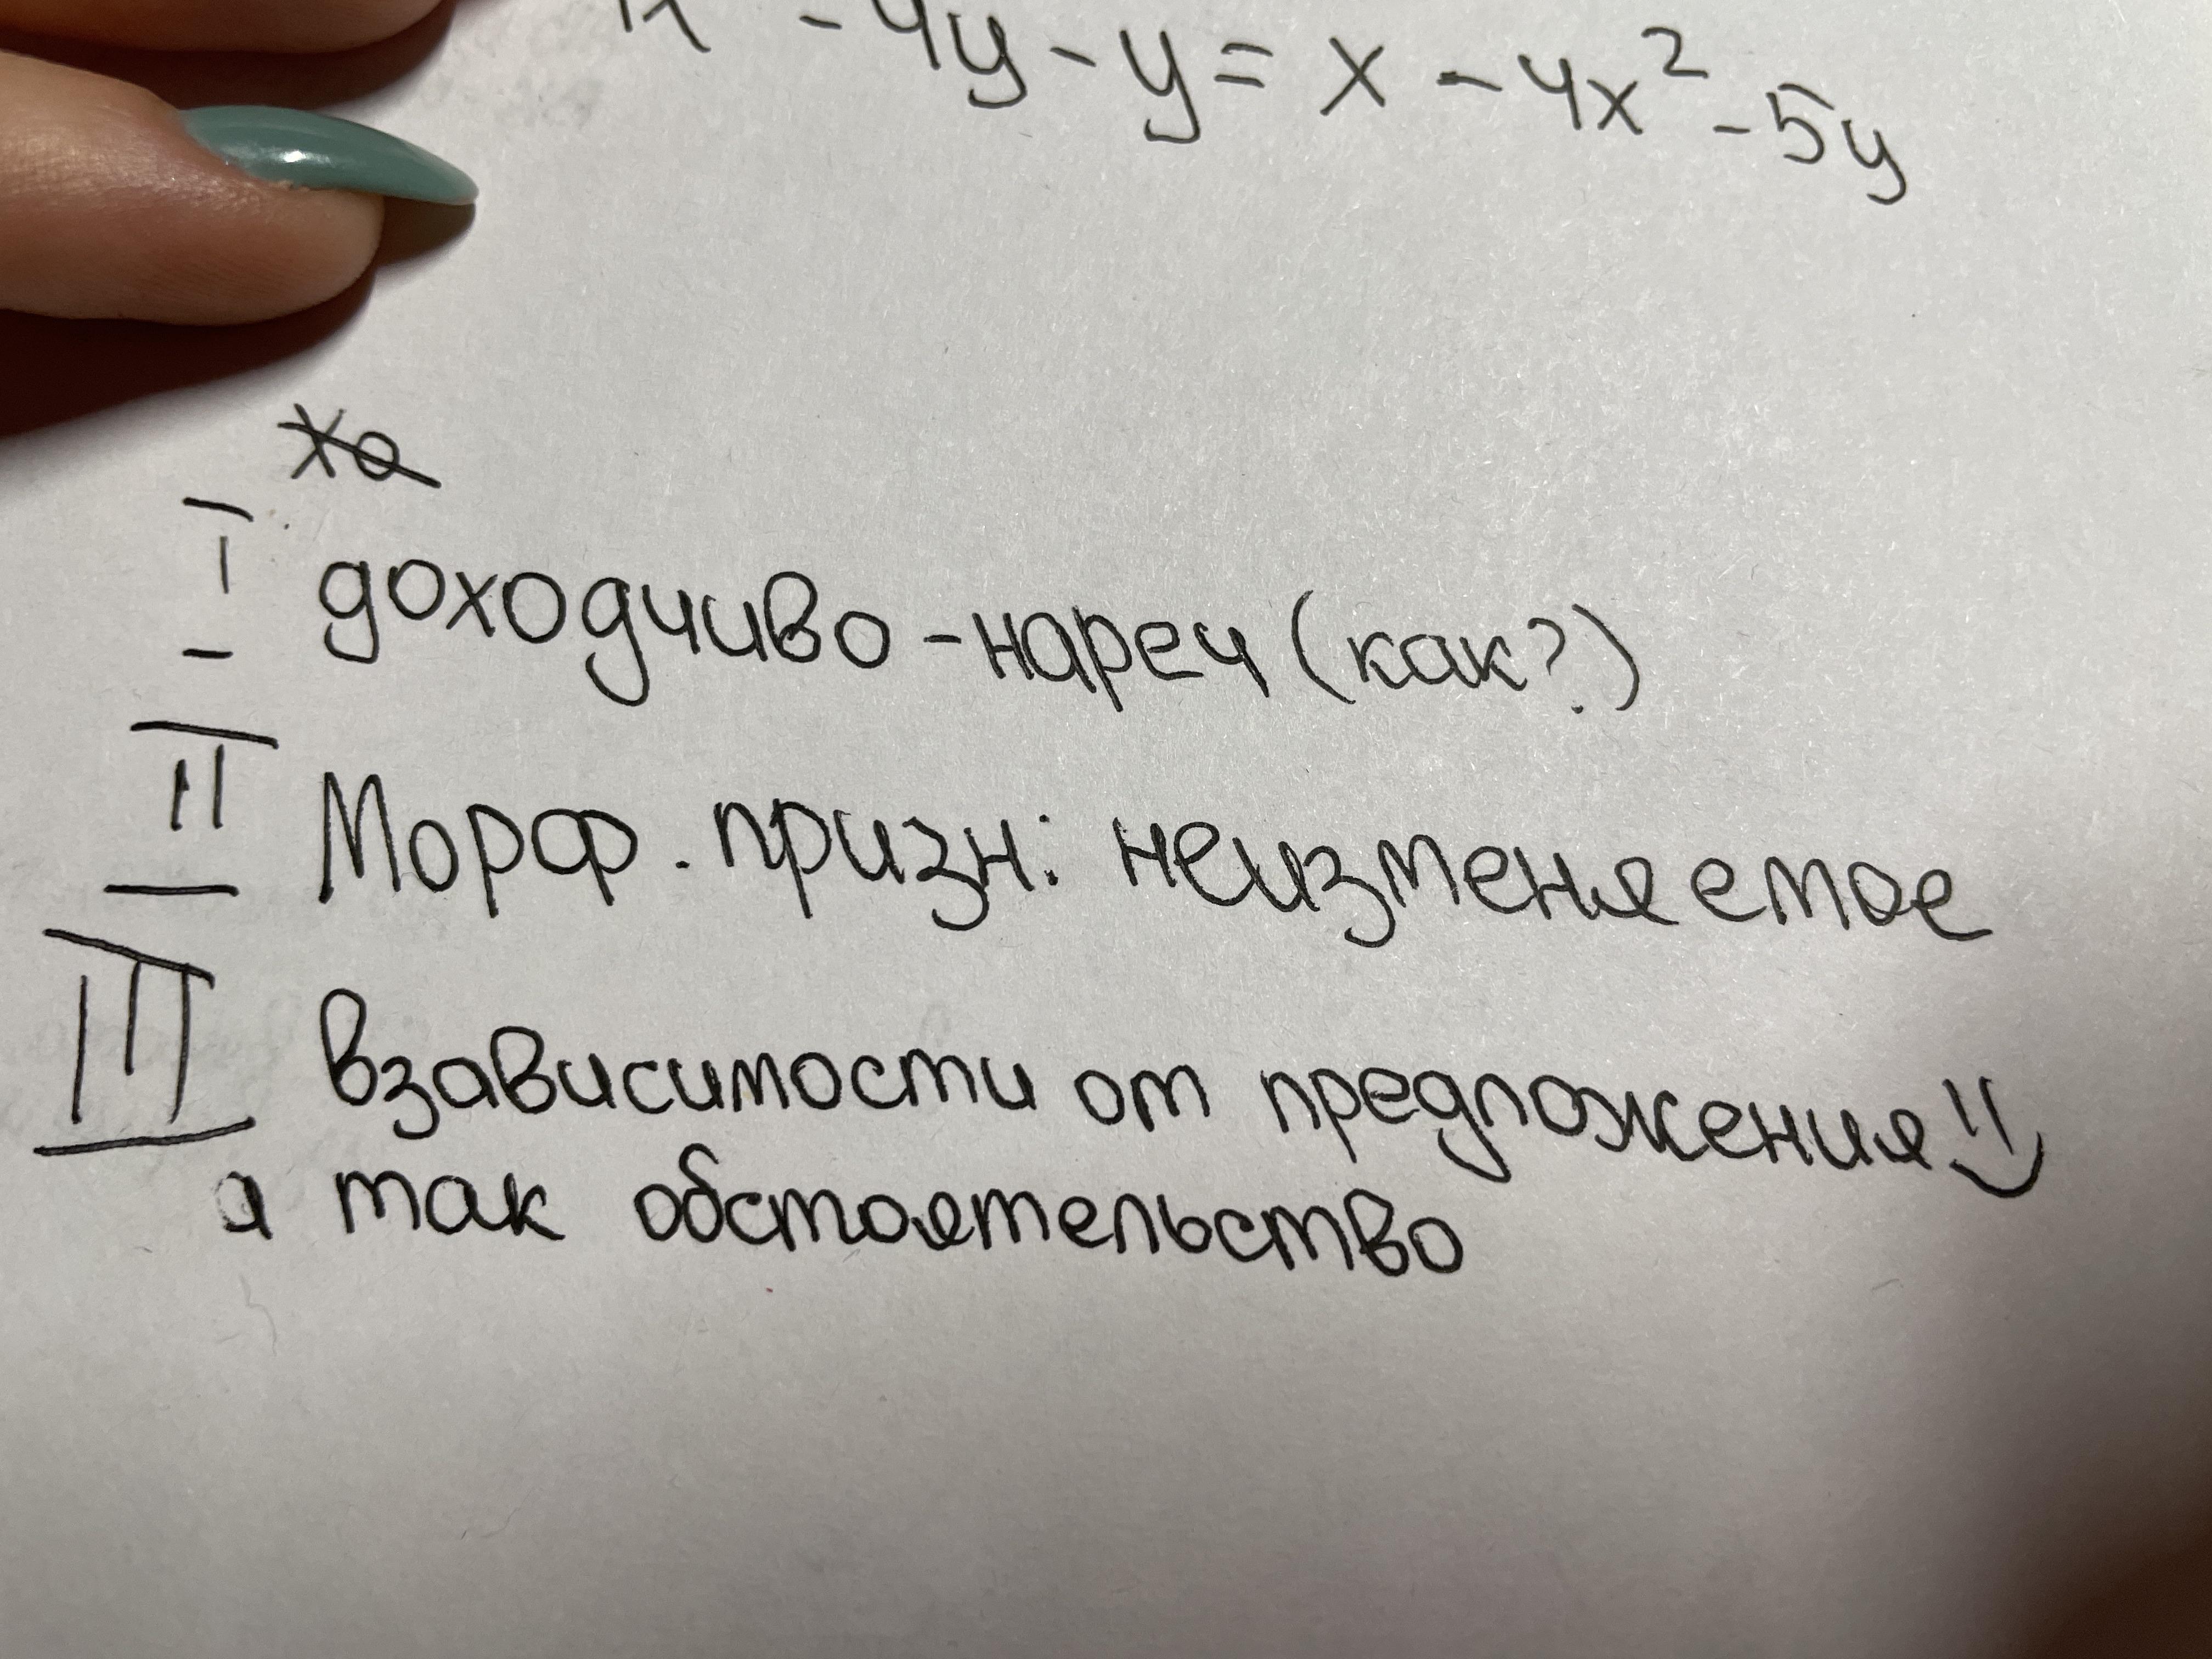 - 4y - y = x - 4x² - 5y
I доходчиво - нареч (как?)
II Морф. призн: неизменяемое
III взависимости от предложения
а так обстоятельство